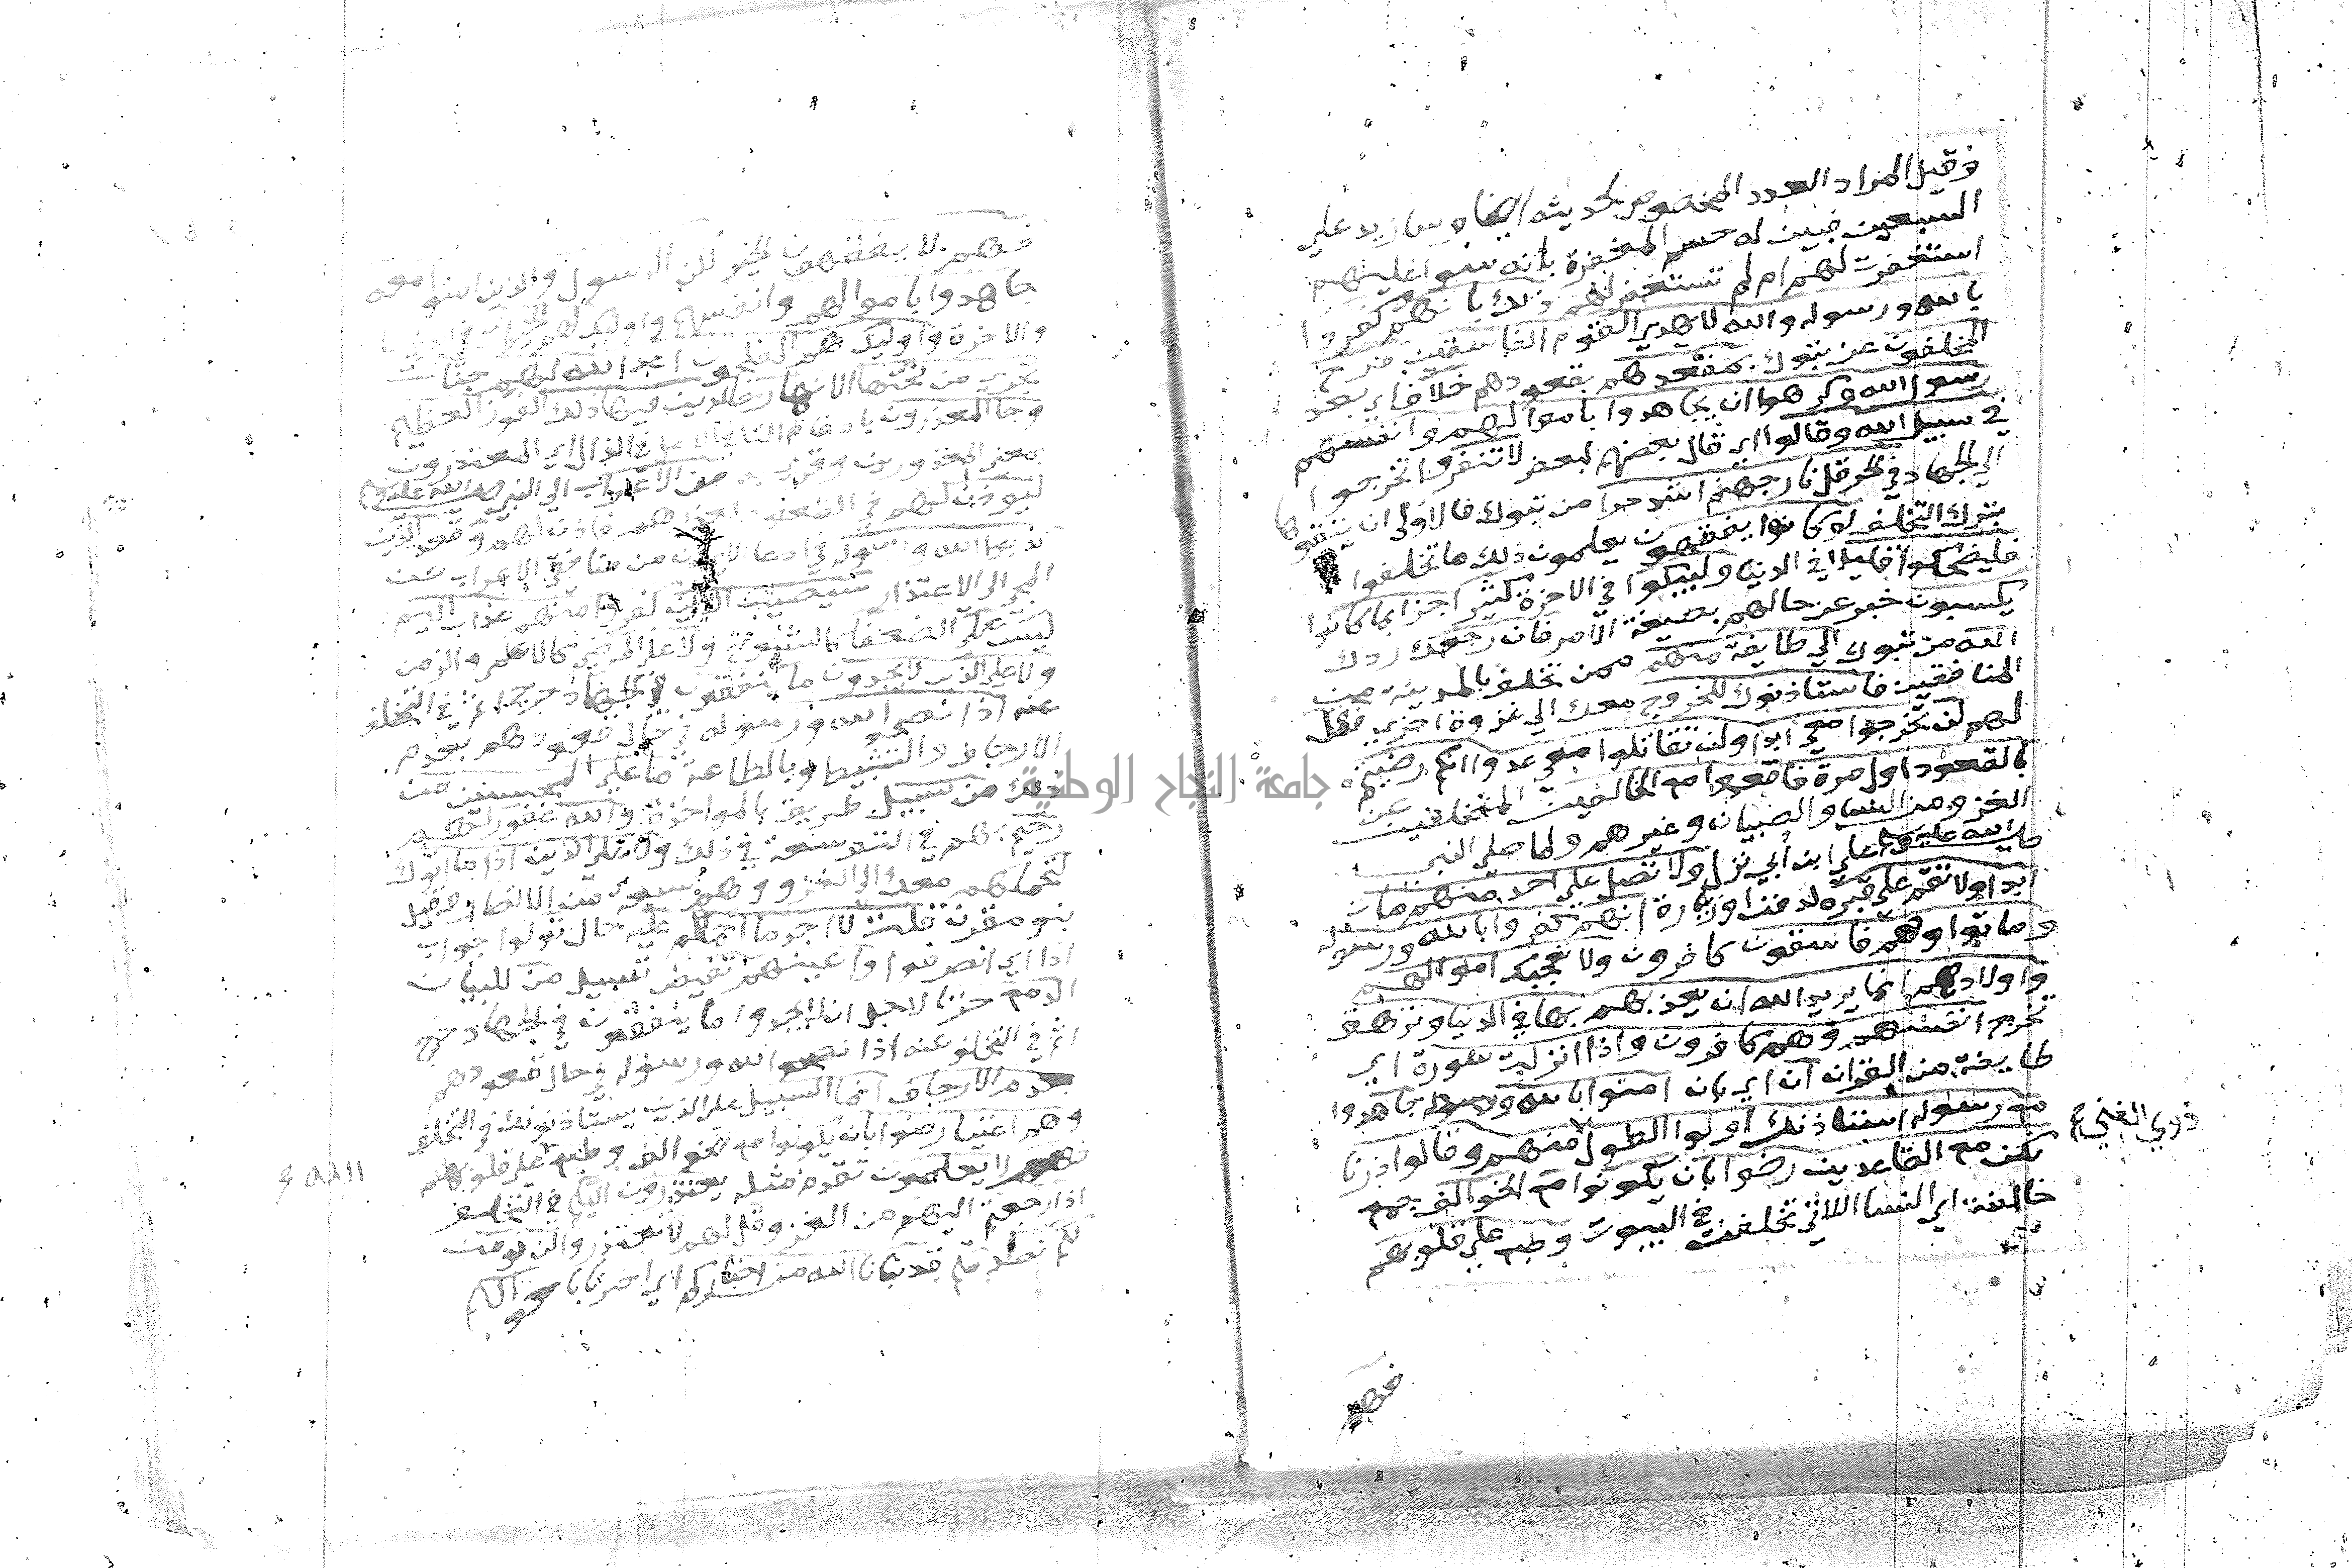 وقيل المراد العدد المخصوص لحديثه ايضا وسازيد علي
السبعين فبين له حسم المغفرة بايه سوا عليهم
استغفرت لهم ام لم تستغفر لهم ذلك بانهم كفروا
بالله ورسوله والله لا يهدي القوم الفاسقين فرح
المخلفون عن تبوك بمقعدهم بقعودهم خلاف اي بعد
رسول الله وكرهوا ان يجاهدوا باموالهم وانفسهم
في سبيل الله وقالوا اي قال بعضهم لبعض لا تنفروا تخرجوا
الي الجهاد في الحر قل نار جهنم اشد حرا من تبوك فالاولي ان يتقوها
بترك التخلف لو كانوا يفقهون يعلمون ذلك ما تخلفوا
فليضحكوا قليلا في الدنيا وليبكوا في الاخرة كثيرا جزا بما كانوا
يكسبون خبر عن حالهم بصيغة الامر فان رجعك ردك
الله من تبوك الي طايفة منهم ممن تخلف بالمدينة من
المنافقين فاستاذنوك للخروج معك الي غزوة اخري فقل
لهم لن تخرجوا معي ابدا ولن تقاتلوا معي عدوا انكم رضيتم
بالقعود اول مرة فاقعدوا مع الخالفين المتخلفين عن
الغزو من النسا والصبيان وغيرهم ولما صلي النبي
صلي الله عليه وسلم علي ابن ابي نزل ولا تصل علي احد منهم مات
ابدا ولا تقم علي قبره لدفن او زيارة انهم كفروا بالله ورسوله
وماتوا وهم فاسقون كافرون ولا تعجبك اموالهم
واولادهم انما يريد الله ان يعذبهم بها في الدنيا وتزهق
تخرج انفسهم وهم كافرون واذا انزلت سورة اي
طايفة من القران ان اي بان امنوا بالله وجاهدوا
مع رسوله استاذنك اولوا الطول منهم وقالوا ذرنا
ذوي الغني ع
نكن مع القاعدين رضوا بان يكونوا مع الخوالف جمع
خالفة اي النسا اللاتي تخلفن في البيوت وطبع علي قلوبهم
فهم
فهم لا يفقهون الخير لكن الرسول والذين امنوا معه
جاهدوا باموالهم وانفسهم واوليك لهم الخيرات في الدنيا
والاخرة واوليك هم المفلحون اعد الله لهم جنات
تجري من تحتها الانهار خالدين فيها ذلك الفوز العظيم
وجا المعذرون بادغام التا في الاصل في الذال اي المعتذرون
بمعني المعذورين وقري به من الاعراب الي النبي صلي الله عليه وسلم
ليوذن لهم في القعود لعذرهم فاذن لهم وقعد الذين
كذبوا الله ورسوله في ادعا الايمان من منافقي الاعراب عن
المجي الي الاعتذار سيصيب الذين كفروا منهم عذاب اليم
ليس علي الضعفا كالشيوخ ولا علي المرضي كالاعمي والزمن
ولا علي الذين لا يجدون ما ينفقون في الجهاد حرج اثم في التخلف
عنه اذا نصحوا لله ورسوله في حال قعودهم بعدم
الارجاف والتثبيط وبالطاعة ما علي المحسنين من
ذلك من سبيل طريق بالمواخذة والله غفور لهم
رحيم بهم في التوسعة في ذلك ولا علي الذين اذا ما اتوك
لتحملهم معك الي الغزو وهم سبعة من الانصار وقيل
بنو مقرن قلت لا اجد ما احملكم عليه حال تولوا جواب
اذا اي انصرفوا واعينهم تفيض تسيل من للبيان
الدمع حزنا لاجل ان لا يجدوا ما ينفقون في الجهاد حرج
اثم في التخلف عنه اذا نصحوا لله ورسوله في حال قعودهم
بعدم الارجاف انما السبيل علي الذين يستاذنونك في التخلف
وهم اغنيا رضوا بان يكونوا مع الخوالف وطبع علي قلوبهم
الله ع
فهم لا يعلمون تقدم مثله يعتذرون اليكم في التخلف
اذا رجعتم اليهم من الغزو قل لهم لا تعتذروا لن نومن
لكم نصدقكم قد نبانا الله من اخباركم اي اخبرنا باحوالكم
جامعة النجاح الوطنية